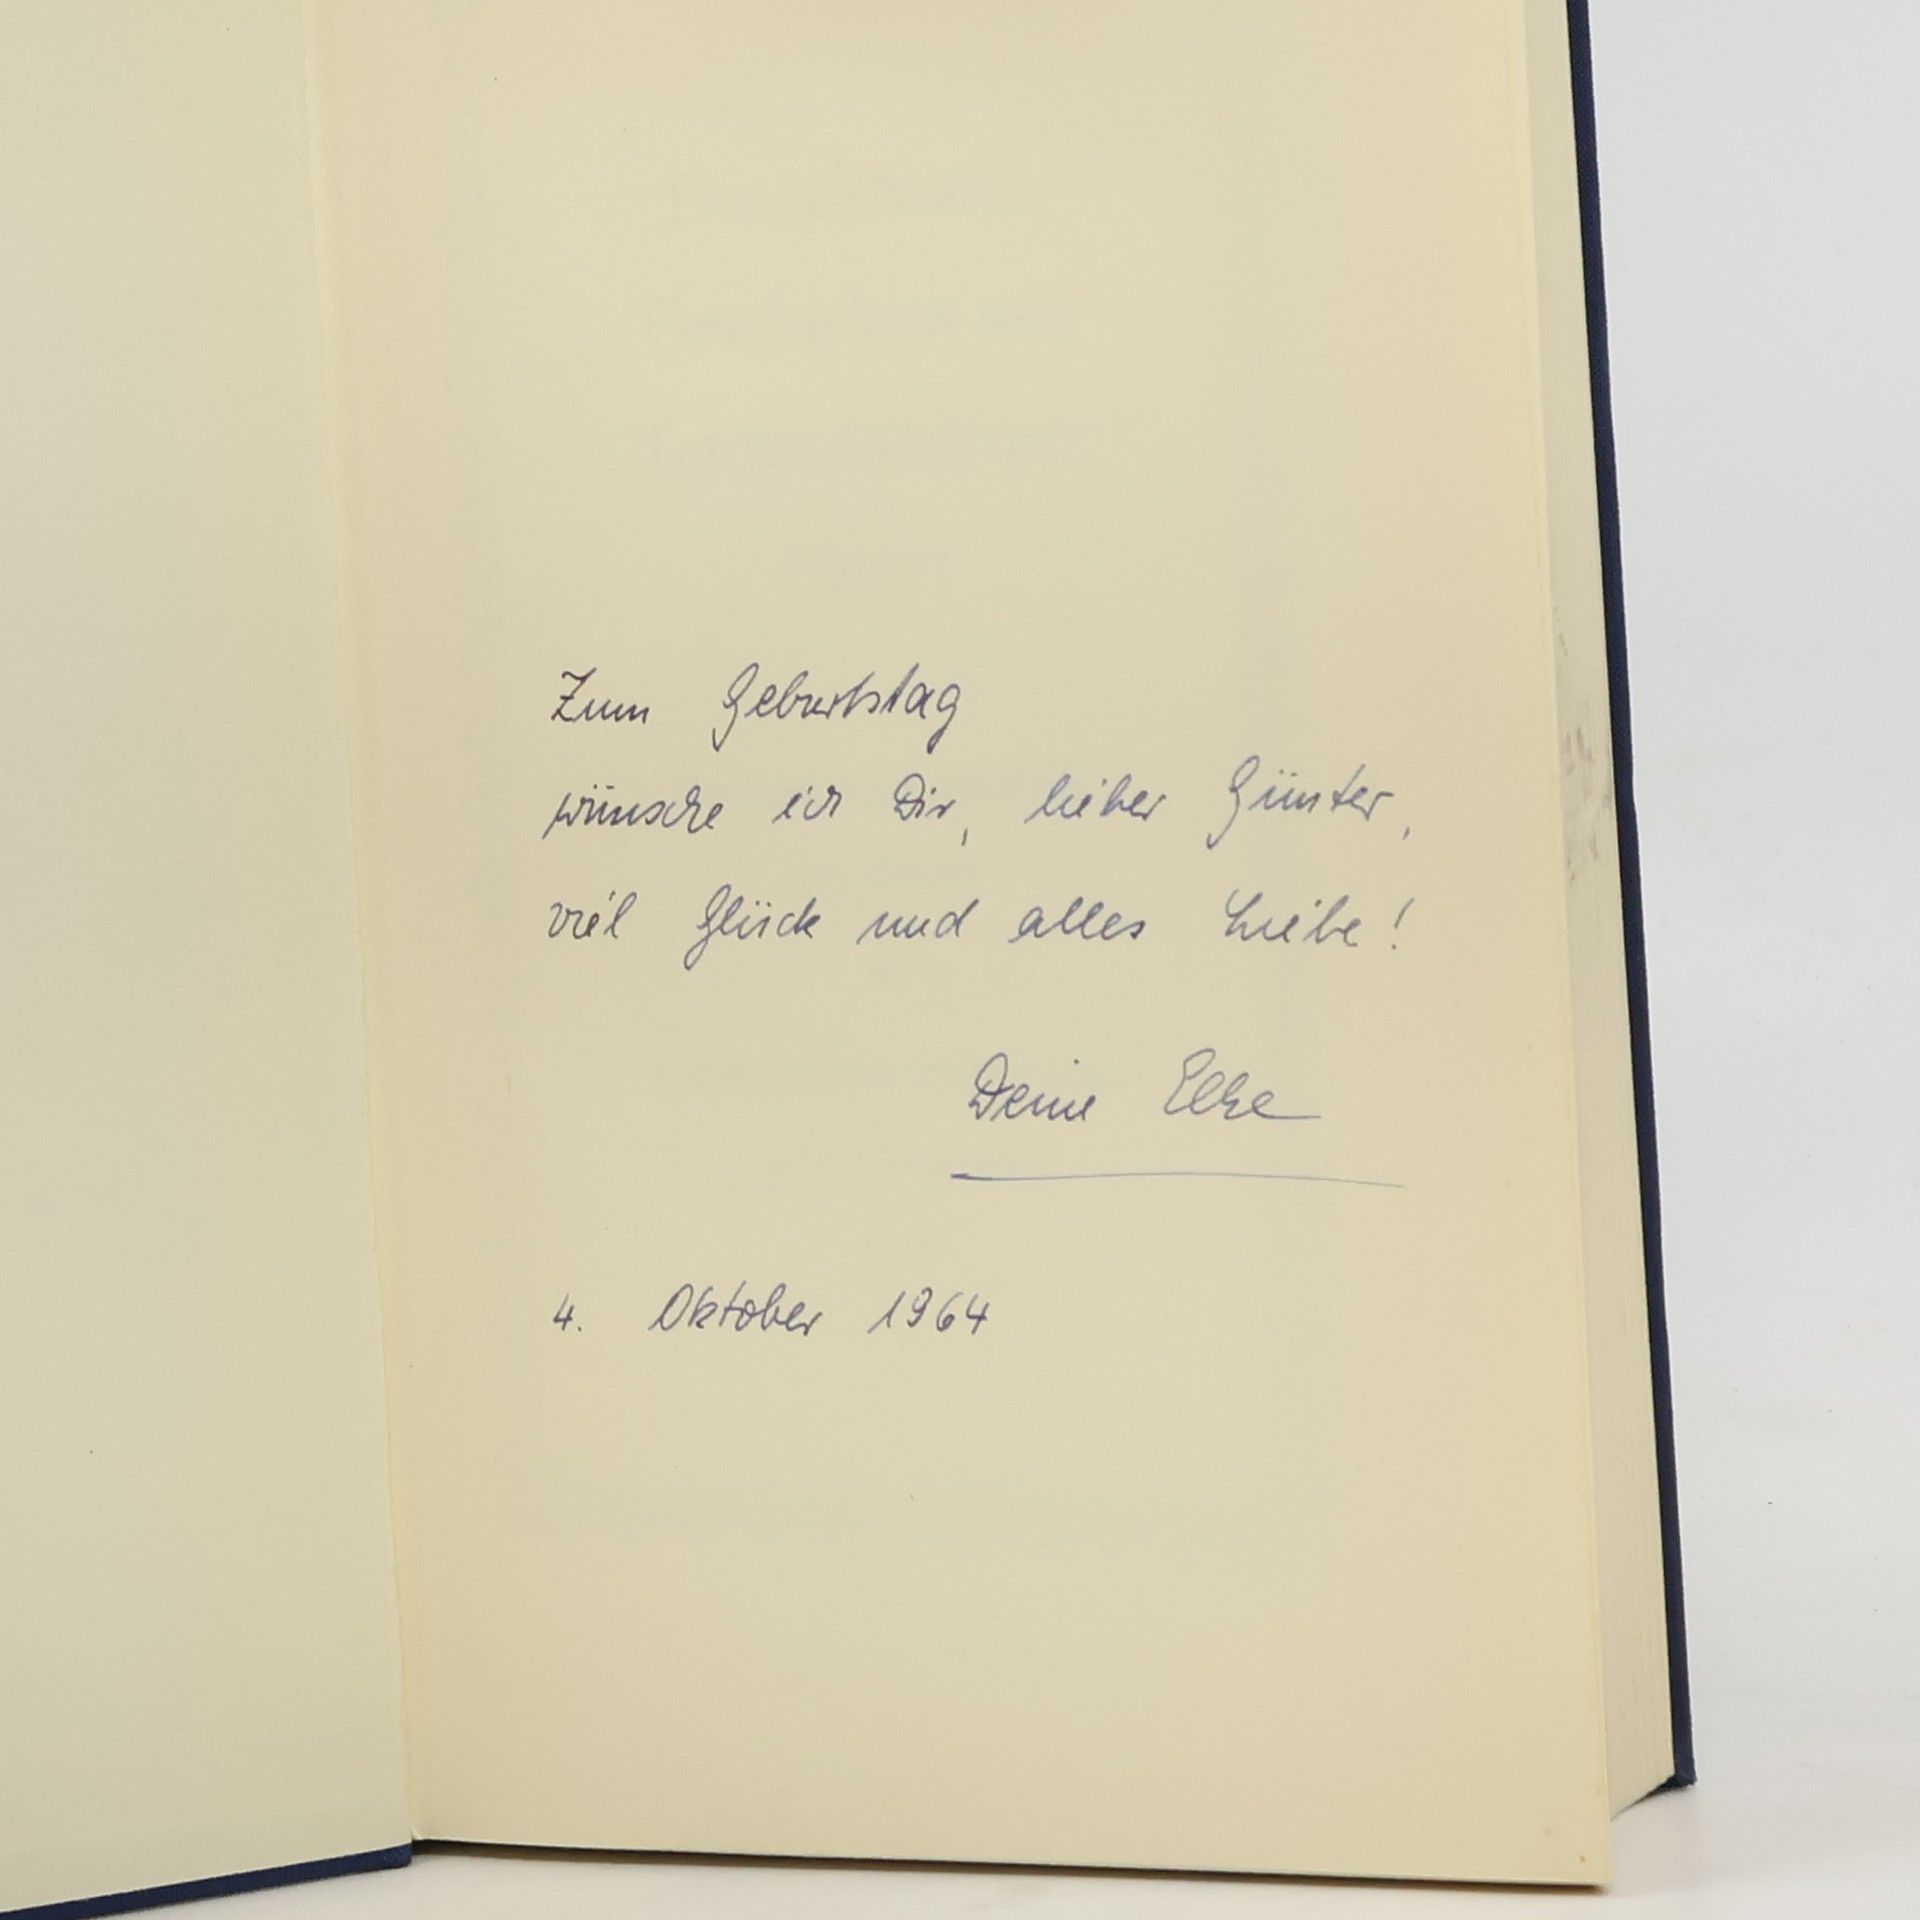 Zum Geburtstag
wünsche ich Dir, lieber Günter,
viel Glück und alles Liebe!
Deine Elke
4. Oktober 1964